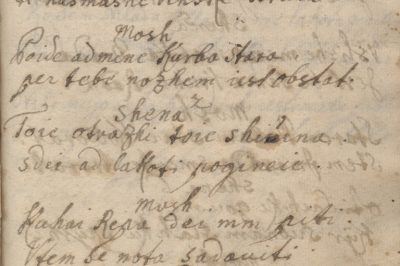 Mosh
Poide ad mene Kurba stara
per tebe nozhem iest obstat.
Shena
Toie otrozhi toie shivina.
sdei ad lakoti pogineio.
mosh.
Kuhai Repo der mm piti
Vtem se nota sadaviti